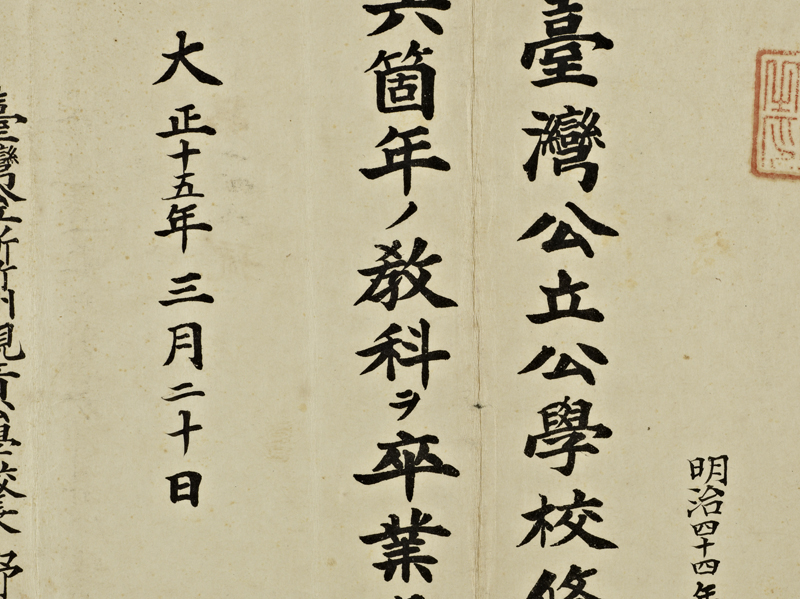 明治四十四年
臺灣公立公學校修
六箇年ノ教科ヲ卒業
大正十五年三月二十日
臺灣公立新竹州視貢公學校長 野